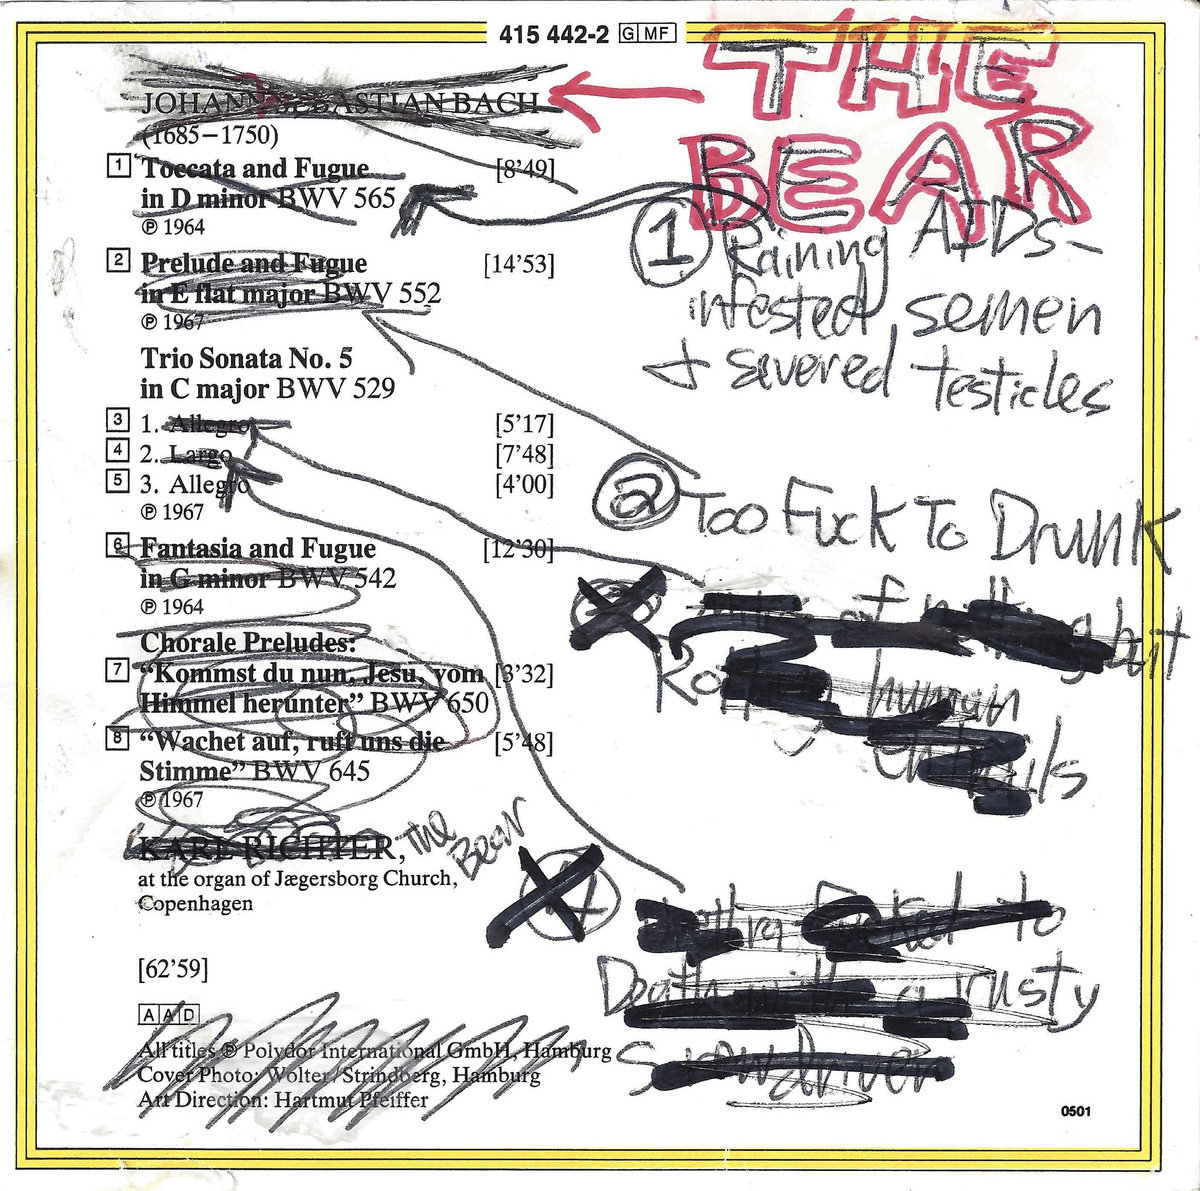 415 442-2 G MF
THE
BEAR
JOHANN SEBASTIAN BACH
(1685–1750)
1 Toccata and Fugue [8'49]
in D minor BWV 565
℗ 1964
① Raining AIDS-
infested semen
+ severed testicles
2 Prelude and Fugue [14'53]
in E flat major BWV 552
℗ 1967
Trio Sonata No. 5
in C major BWV 529
3 1. Allegro [5'17]
4 2. Largo [7'48]
5 3. Allegro [4'00]
℗ 1967
② Too Fuck To Drunk
6 Fantasia and Fugue [12'30]
in G minor BWV 542
℗ 1964
of nothing but
Rotting human
entrails
Chorale Preludes:
7 "Kommst du nun, Jesu, vom [3'32]
Himmel herunter" BWV 650
8 "Wachet auf, ruft uns die [5'48]
Stimme" BWV 645
℗ 1967
KARL RICHTER, The Bear
at the organ of Jægersborg Church,
Copenhagen
4 Fucked to
Death with a rusty
Screwdriver
[62'59]
A A D
All titles ℗ Polydor International GmbH, Hamburg
Cover Photo: Wolter/Strindberg, Hamburg
Art Direction: Hartmut Pfeiffer
0501